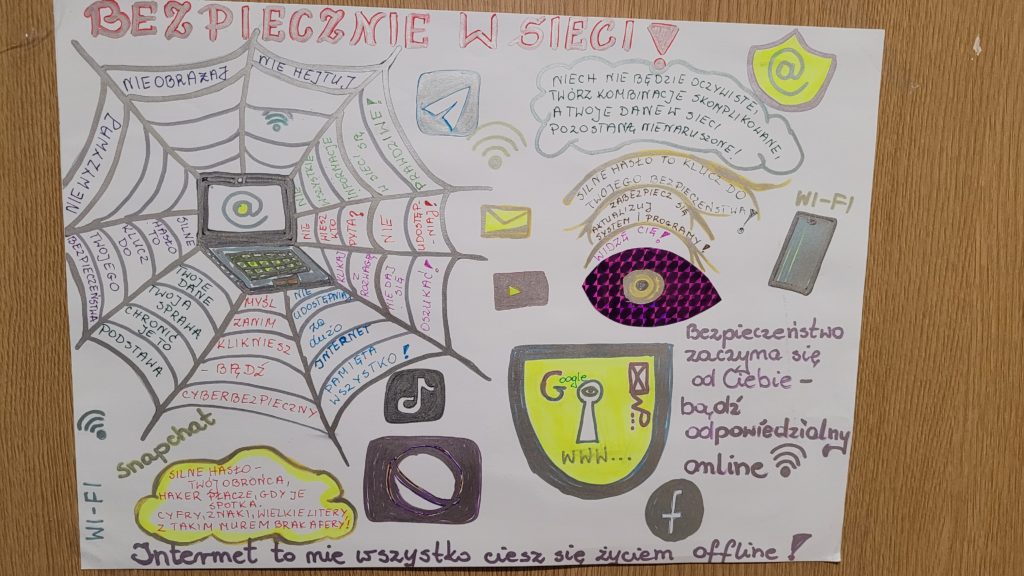 BEZPIECZNIE W SIECI!
NIE OBRAŻAJ
NIE HEJTUJ
NIE WYZYWAJ
NIE
WSZYSTKIE
INFORMACJE
W SIECI SĄ
PRAWDZIWE!
NIE
WIESZ TO
PYTAJ!
NIE
UDOSTĘP-
NIAJ!
SZUKAJ
Z
ROZWAGĄ
NIE DAJ
SIĘ
OSZUKAĆ!
SILNE
HASŁO
KLUCZ
DO
TWOJEGO
BEZPIECZEŃSTWA
TWOJE
DANE
TWOJA
SPRAWA
CHRONIĆ
JE TO
PODSTAWA
MYŚL
ZANIM
KLIKNIESZ
- BĄDŹ
CYBERBEZPIECZNY
NIE
UDOSTĘPNIAJ
za
dużo
INTERNET
PAMIĘTA
WSZYSTKO!
@
@
NIECH NIE BĘDZIE OCZYWISTE!
TWÓRZ KOMBINACJE SKOMPLIKOWANE,
A TWOJE DANE W SIECI
POZOSTANĄ NIENARUSZONE!
SILNE HASŁO TO KLUCZ DO
TWOJEGO BEZPIEKEŃSTWA!
ZABEZPIECZ SIĘ
AKTUALIZUJ
SYSTEM I PROGRAMY!
WIDZĘ CIĘ!
WI-FI
Bezpieczeństwo
zaczyna się
od Ciebie -
bądź
odpowiedzialny
online
Google
WWW...
Snapchat
WI-FI
SILNE HASŁO -
TWÓJ OBROŃCA,
HAKER PŁACZE, GDY JE
SPOTKA.
CYFRY, ZNAKI, WIELKIE LITERY
Z TAKIM MUREM BRAK AFERY!
f
Internet to nie wszystko ciesz się życiem offline!